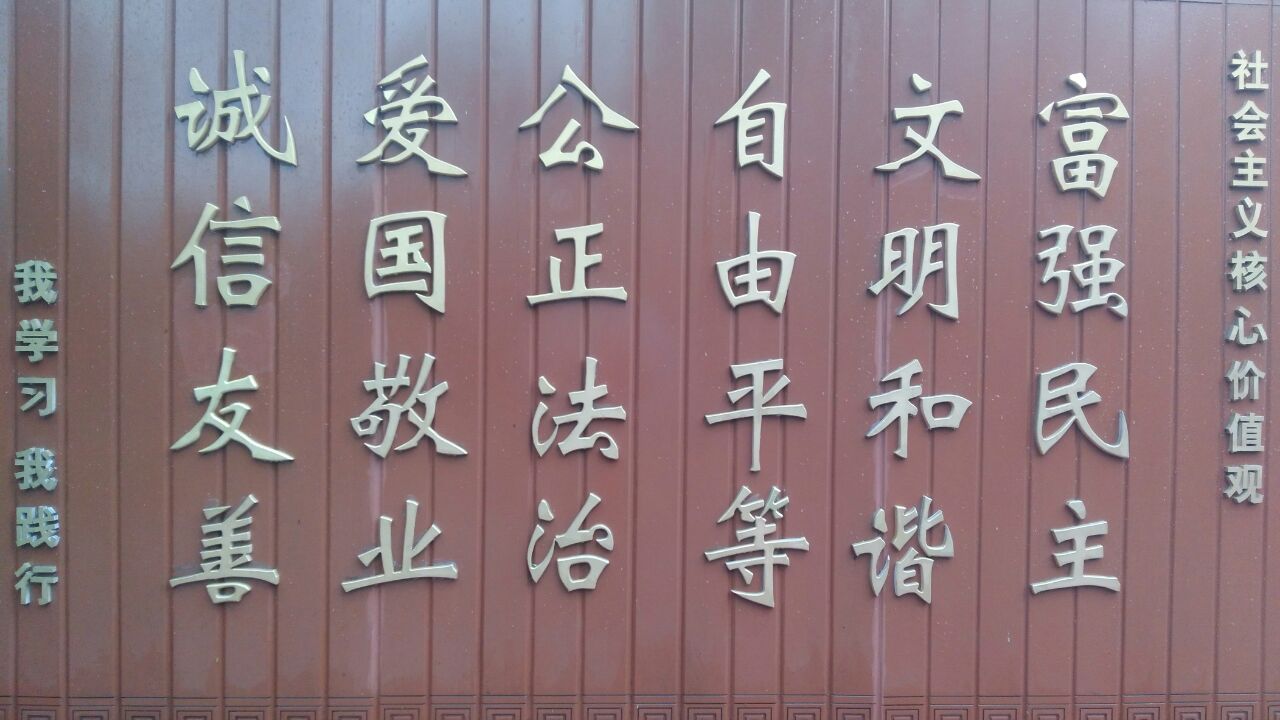 社会主义核心价值观
富强民主
文明和谐
自由平等
公正法治
爱国敬业
诚信友善
我学习 我践行